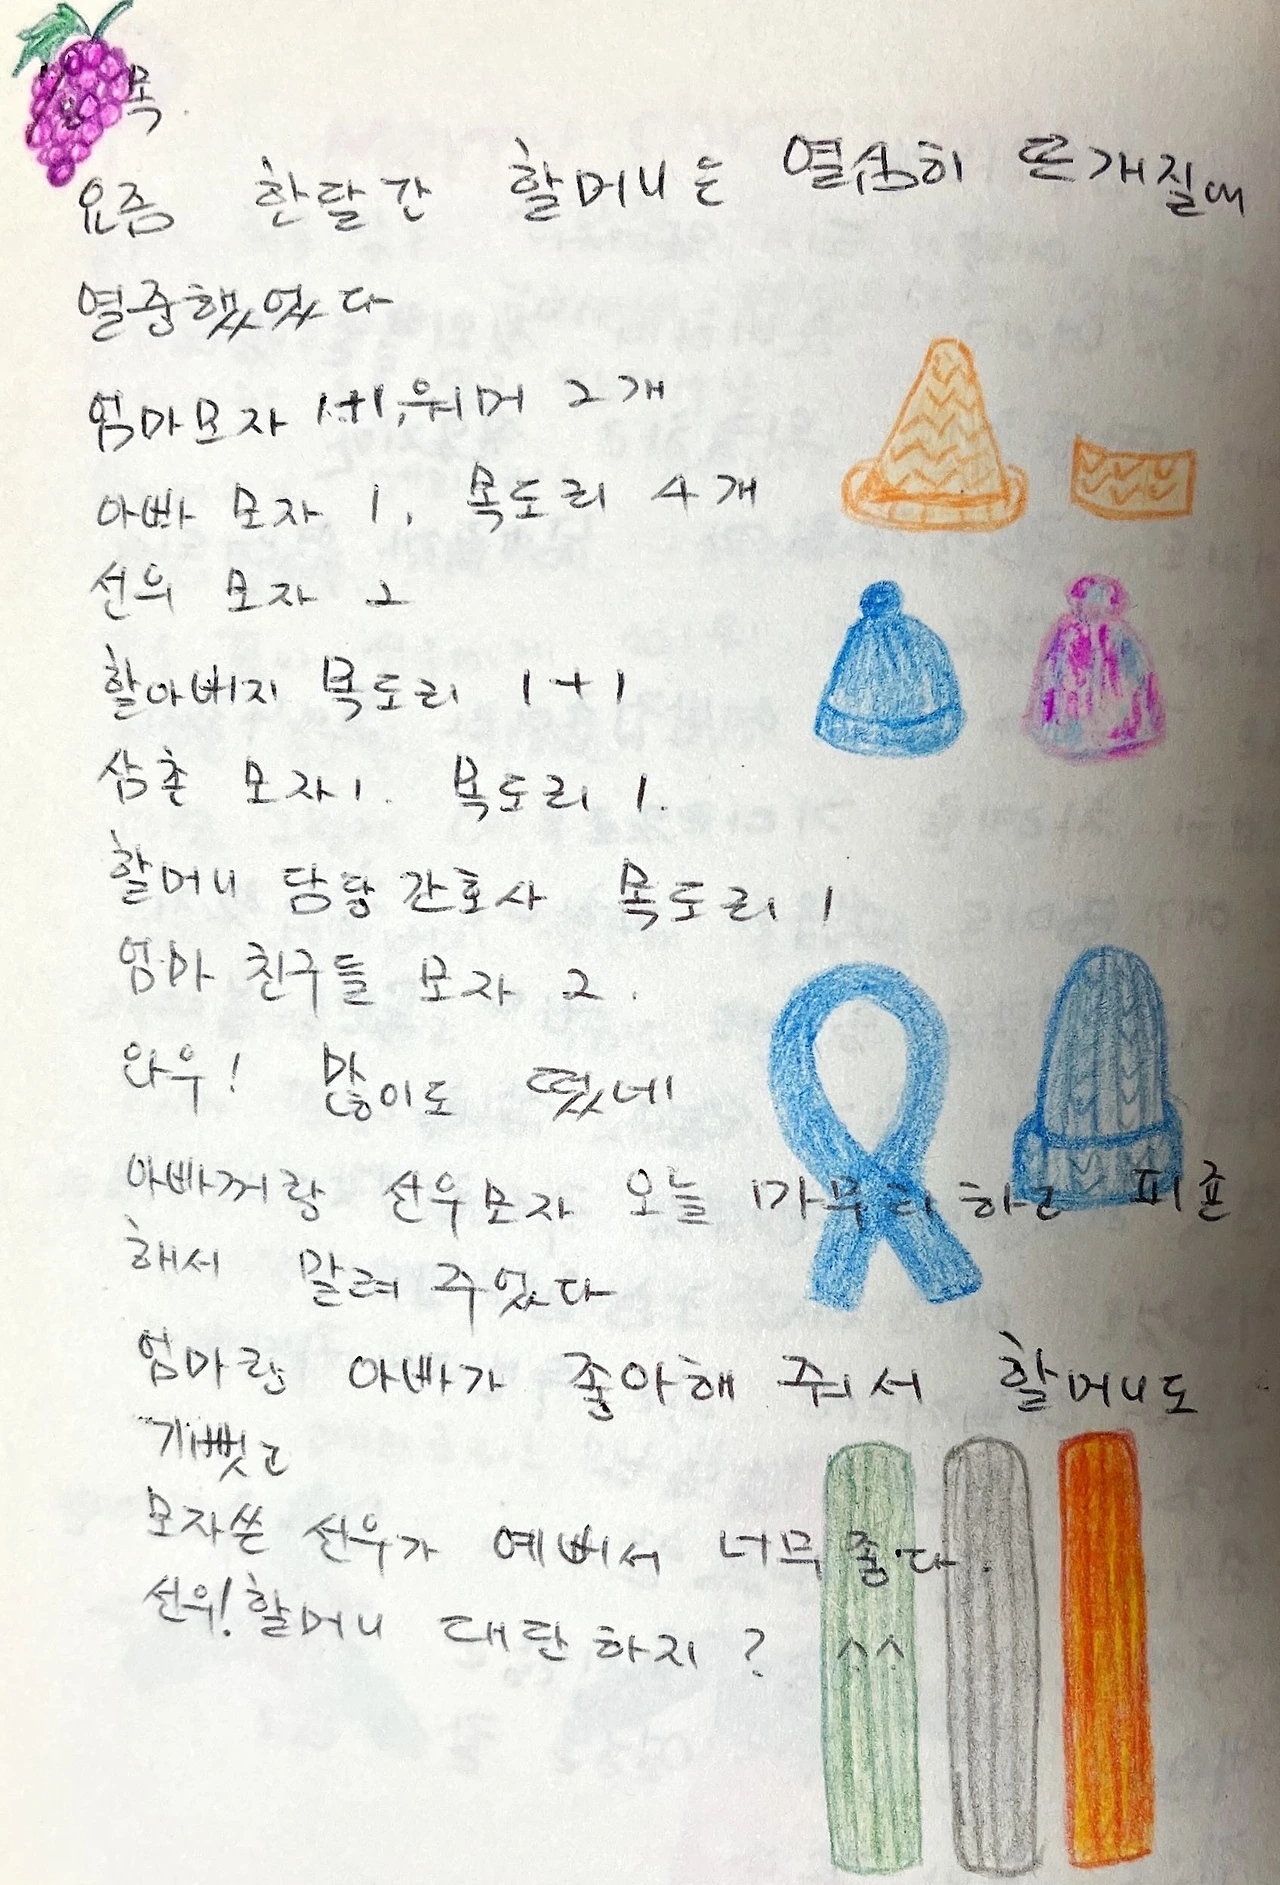 목.
요즘 한달간 할머니는 열심히 뜬개질에
열중했었다
엄마모자 1+1, 워머 2개
아빠 모자 1. 목도리 4개
선우 모자 2
할아버지 목도리 1+1
삼촌 모자 1. 목도리 1.
할머니 담당 간호사 목도리 1
엄마 친구들 모자 2.
와우! 많이도 떴네
아빠꺼랑 선우모자 오늘 마무리 하고 피죤
해서 말려 주었다
엄마랑 아빠가 좋아해 줘서 할머니도
기뻣고
모자쓴 선우가 예뻐서 너무 좋다.
선우! 할머니 대단하지? ^^